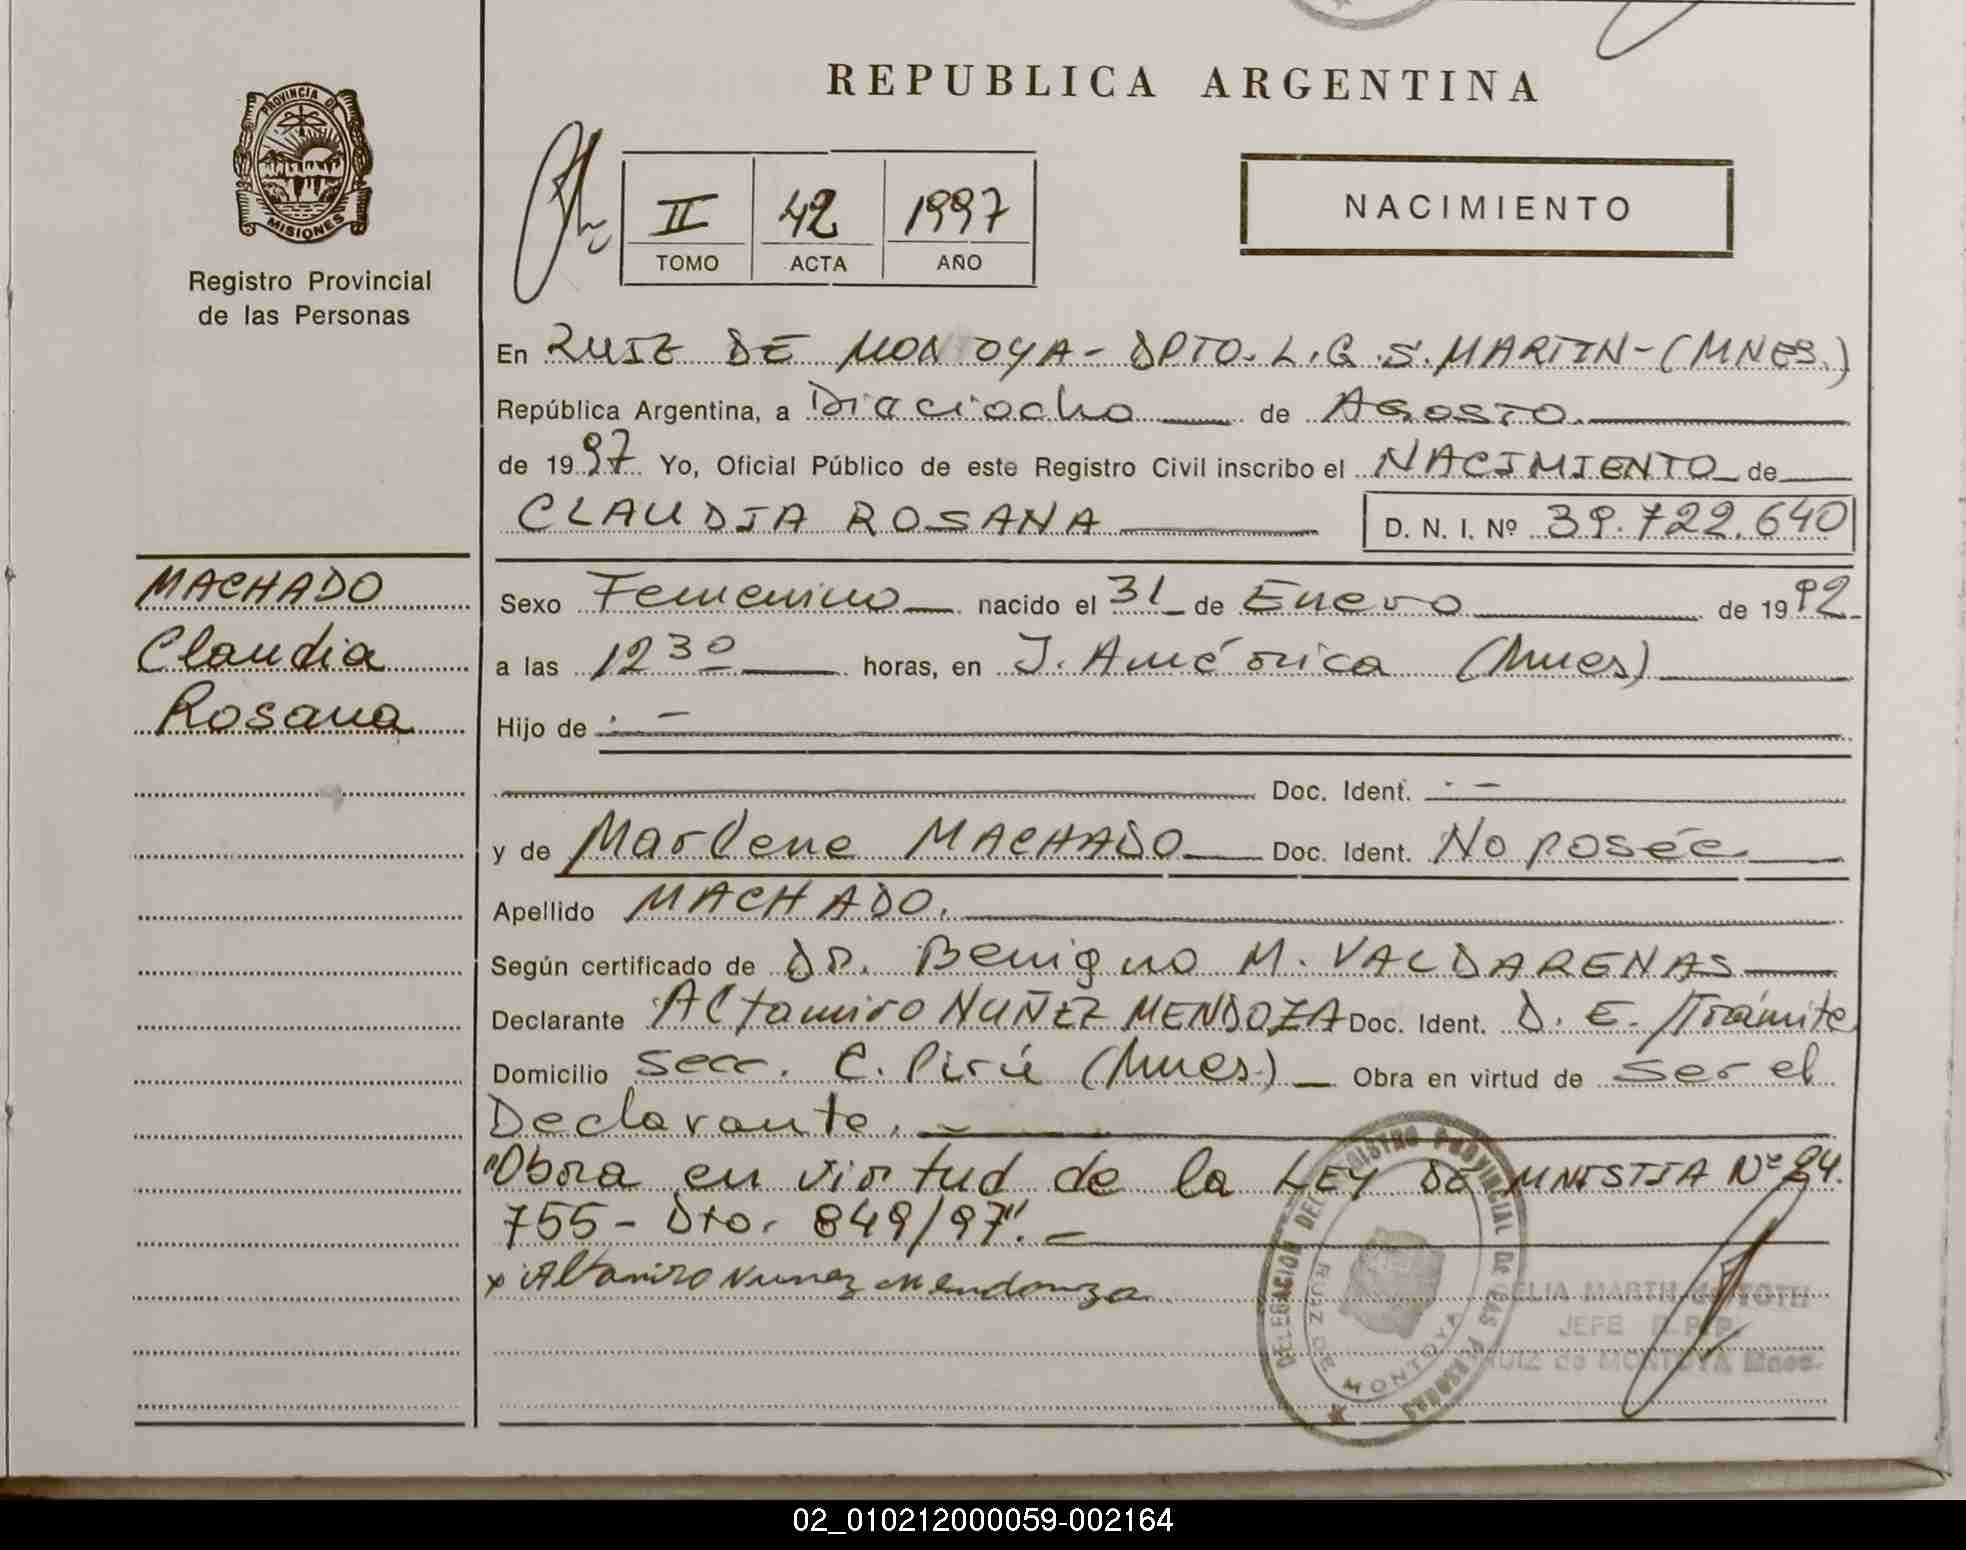 PROVINCIA DE
MISIONES
Registro Provincial
de las Personas
MACHADO
Claudia
Rosana
REPUBLICA ARGENTINA
II 42 1997
TOMO ACTA AÑO
NACIMIENTO
En RUIZ DE MONTOYA - DPTO. L.G.S. MARTIN - (MNES.)
República Argentina, a Dieciocho de AGOSTO.
de 1997 Yo, Oficial Público de este Registro Civil inscribo el NACIMIENTO de
CLAUDIA ROSANA D. N. I. Nº 39.722.640
Sexo Femenino nacido el 31 de Enero de 1992
a las 12 30 horas, en J. América (Mnes)
Hijo de . -
Doc. Ident. . -
y de Marlene MACHADO Doc. Ident. No poseé
Apellido MACHADO.
Según certificado de DR. Benigno M. VALDARENAS
Declarante Altamiro NUÑEZ MENDOZA Doc. Ident. D. E. /Trámite
Domicilio Secc. C. Pirú (Mnes) Obra en virtud de ser el
Declarante.
"Obra en virtud de la LEY DE MNISTIA Nº 24.
755 - Dto. 849/97".
x Altamiro Nunez Mendonza
DELEGACION DEL REGISTRO PROVINCIAL DE LAS PERSONAS
RUIZ DE MONTOYA
JEFE R.P.P.
RUIZ de MONTOYA Mnes.
02_010212000059-002164